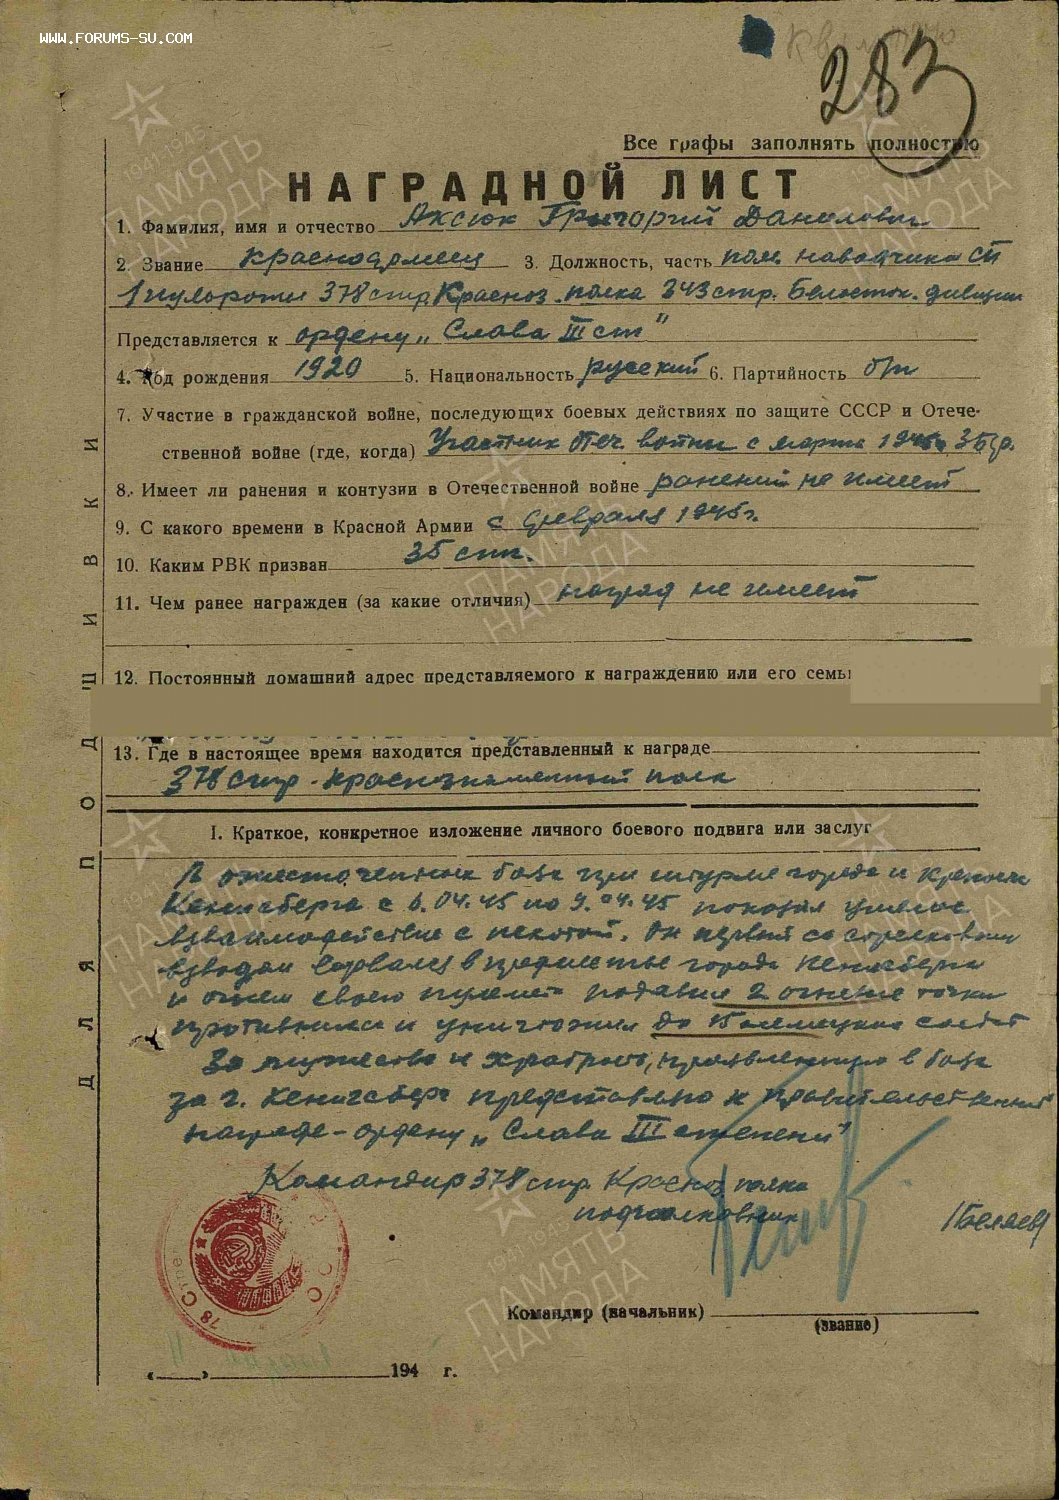 WWW.FORUMS-SU.COM
283
Все графы заполнять полностью
НАГРАДНОЙ ЛИСТ
1. Фамилия, имя и отчество Аксюк Григорий Данилович
2. Звание Красноармеец 3. Должность, часть пом. наводчика СП
1 пульроты 378 стр. Красноз. полка 343 стр. Белосток. дивизии
Представляется к ордену „Слава III ст"
4. Год рождения 1920 5. Национальность русский 6. Партийность б/п
7. Участие в гражданской войне, последующих боевых действиях по защите СССР и Отече-
ственной войне (где, когда) Участник От. войны с марта 1945г. 3 Б.ф.
8. Имеет ли ранения и контузии в Отечественной войне ранений не имеет
9. С какого времени в Красной Армии с февраля 1945г.
10. Каким РВК призван 35 стр.
11. Чем ранее награжден (за какие отличия) наград не имеет
12. Постоянный домашний адрес представляемого к награждению или его семьи
13. Где в настоящее время находится представленный к награде
378 стр. Краснознаменный полк
I. Краткое, конкретное изложение личного боевого подвига или заслуг
В ожесточенных боях при штурме города и крепости
Кенигсберга с 6.04.45 по 9.04.45 показал умелое
взаимодействие с пехотой. Он первый со стрелковым
взводом ворвался в предместье города Кенигсберга
и огнем своего пулемета подавил 2 огневые точки
противника и уничтожил до 15 немецких солдат
За мужество и храбрость, проявленную в боях
за г. Кенигсберг представляю к правительственной
награде - ордену „Слава III степени"
Командир 378 стр. Красноз. полка
подполковник /Беляев/
Командир (начальник)
(звание)
„ “ 194 г.
ДЛЯ ПОДШИВКИ
ПАМЯТЬ НАРОДА
1941-1945